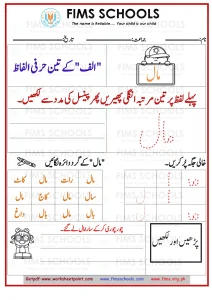 FIMS SCHOOLS
The name is Reliable.... Your child is our child
نام: جماعت: تاریخ:
"الف" کے تین حرفی الفاظ
مال
پہلے لفظ پر تین مرتبہ انگلی پھیریں پھر پینسل کی مدد سے لکھیں۔
مال
"مال" کے گرد دائرہ لگائیں
خالی جگہ پر کریں۔
مال رات مال کات
سال مال کاج مال
مال بال بال داغ
چور چوری کر کے سارا مال لے گئے۔
پڑھیں اور لکھیں
Getpdf :www.worksheetpoint.com www.fimsschools.com www.fims.org.pk